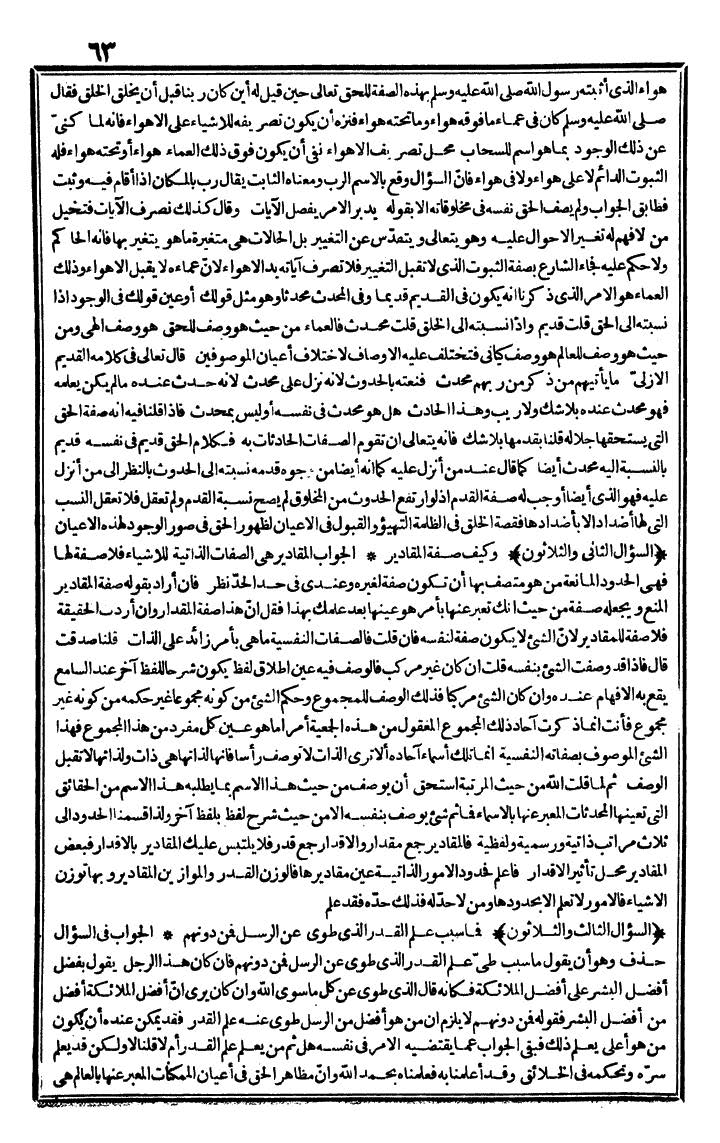 ٦٣
هواء الذى أثبته رسول الله صلى الله عليه وسلم بهذه الصفة للحق تعالى حين قيل له أين كان ربنا قبل أن يخلق الخلق فقال
صلى الله عليه وسلم كان فى عماء ما فوقه هواء وما تحته هواء فنزه أن يكون تصريفه للاشياء على الاهواء فانه لما كنىّ
عن ذلك الوجود بما هو اسم للسحاب محل تصريف الاهواء نفى أن يكون فوق ذلك العماء هواء أو تحته هواء فله
الثبوت الدائم لا على هواء ولا فى هواء فانّ السؤال وقع بالاسم الرب ومعناه الثابت يقال رب بالمكان اذا أقام فيه وثبت
فطابق الجواب ولم يصف الحق نفسه فى مخلوقاته الا بقوله يدبر الامر يفصل الآيات وقال كذلك نصرف الآيات فتخيل
من لا فهم له تغيير الاحوال عليه وهو يتعالى ويتقدّس عن التغيير بل الحالات هى متغيرة ما هو يتغير بها فانه الحاكم
ولا حكم عليه فجاء الشارع بصفة الثبوت الذى لا تقبل التغيير فلا تصرف آياته يد الاهواء لانّ عماءه لا يقبل الاهواء وذلك
العماء هو الامر الذى ذكرنا انه يكون فى القديم قديما وفى المحدث محدثا وهو مثل قولك أو عين قولك فى الوجود اذا
نسبته الى الحق قلت قديم واذا نسبته الى الخلق قلت محدث فالعماء من حيث هو وصف للحق هو وصف الهى ومن
حيث هو وصف للعالم هو وصف كيانى فتختلف عليه الاوصاف لاختلاف أعيان الموصوفين قال تعالى فى كلامه القديم
الازلىّ ما يأتيهم من ذكر من ربهم محدث فنعته بالحدوث لانه نزل على محدث لانه حدث عنده ما لم يكن يعلمه
فهو محدث عنده بلا شك ولا ريب وهذا الحادث هل هو محدث فى نفسه أو ليس بمحدث فاذا قلنا فيه انه صفة الحق
التى يستحقها جلاله قلنا بقدمها بلا شك فانه يتعالى ان تقوم الصفات الحادثات به فكلام الحق قديم فى نفسه قديم
بالنسبة اليه محدث أيضا كما قال عند من أنزل عليه كما انه أيضا من وجوه قدمه نسبته الى الحدوث بالنظر الى من أنزل
عليه فهو الذى أيضا أوجب له صفة القدم اذ لو ارتفع الحدوث من المخلوق لم يصح نسبة القدم ولم تعقل فلا تعقل النسب
التى لها أضداد الا بأضدادها فقصة الخلق فى الظلمة التهيؤ والقبول فى الاعيان لظهور الحق فى صور الوجود لهذه الاعيان
﴿السؤال الثانى والثلاثون﴾ وكيف صفة المقادير * الجواب المقادير هى الصفات الذاتية للاشياء فلا صفة لها
فهى الحدود المانعة من هو متصف بها أن تكون صفة لغيره وعندى فى حد الحدّ نظر فان أراد بقوله صفة المقادير
المنع ويجعله صفة من حيث انك تعبر عنها بأمر هو عينها بعد علمك بهذا فقل انّ هذا صفة المقدار وان أردت الحقيقة
فلا صفة للمقادير لانّ الشئ لا يكون صفة لنفسه فان قلت فالصفات النفسية ما هى بأمر زائد على الذات قلنا صدقت
قال فاذا قد وصفت الشئ بنفسه قلت ان كان غير مركب فالوصف فيه عين اطلاق لفظ يكون شرحا للفظ آخر عند السامع
يقع به الافهام عنده وان كان الشئ مركبا فذلك الوصف للمجموع وحكم الشئ من كونه مجموعا غير حكمه من كونه غير
مجموع فأنت انما ذكرت آحاد ذلك المجموع المعقول من هذه الجمعية أمرا ما هو عين كل مفرد من هذا المجموع فهذا
الشئ الموصوف بصفاته النفسية انما تلك أسماء آحاده ألا ترى الذات لا توصف رأسا فانها لذاتها هى ذات ولذاتها لا تقبل
الوصف ثم لما قلت الله من حيث المرتبة استحق أن يوصف من حيث هذا الاسم بما يطلبه هذا الاسم من الحقائق
التى تعينها المحدثات المعبر عنها بالاسماء فما ثم شئ يوصف بنفسه الا من حيث شرح لفظ بلفظ آخر ولذا قسمنا الحدود الى
ثلاث مراتب ذاتية ورسمية ولفظية فالمقادير جمع مقدار والاقدار جمع قدر فلا يلتبس عليك المقادير بالاقدار فبعض
المقادير محل تأثير الاقدار فاعلم فحدود الامور الذاتية عين مقاديرها فالوزن القدر والموازين المقادير وبها توزن
الاشياء فالامور لا تعلم الا بحدودها ومن لا حدّ له فذلك حدّه فقد علم
﴿السؤال الثالث والثلاثون﴾ فما سبب علم القدر الذى طوى عن الرسل فمن دونهم * الجواب فى السؤال
حذف وهو أن يقول ما سبب طىّ علم القدر الذى طوى عن الرسل فمن دونهم فان كان هذا الرجل يقول بفضل
أفضل البشر على أفضل الملائكة فكانه قال الذى طوى عن كل ما سوى الله وان كان يرى انّ أفضل الملائكة أفضل
من أفضل البشر فقوله فمن دونهم لا يلزم ان من هو أفضل من الرسل طوى عنه علم القدر فقد يمكن عنده أن يكون
من هو أعلى يعلم ذلك فبقى الجواب عما يقتضيه الامر فى نفسه هل ثم من يعلم علم القدر أم لا قلنا لا ولكن قد يعلم
سرّه وتحكمه فى الخلائق وقد أعلمنا به فعلمناه بحمد الله وانّ مظاهر الحق فى أعيان الممكنات المعبر عنها بالعالم هى